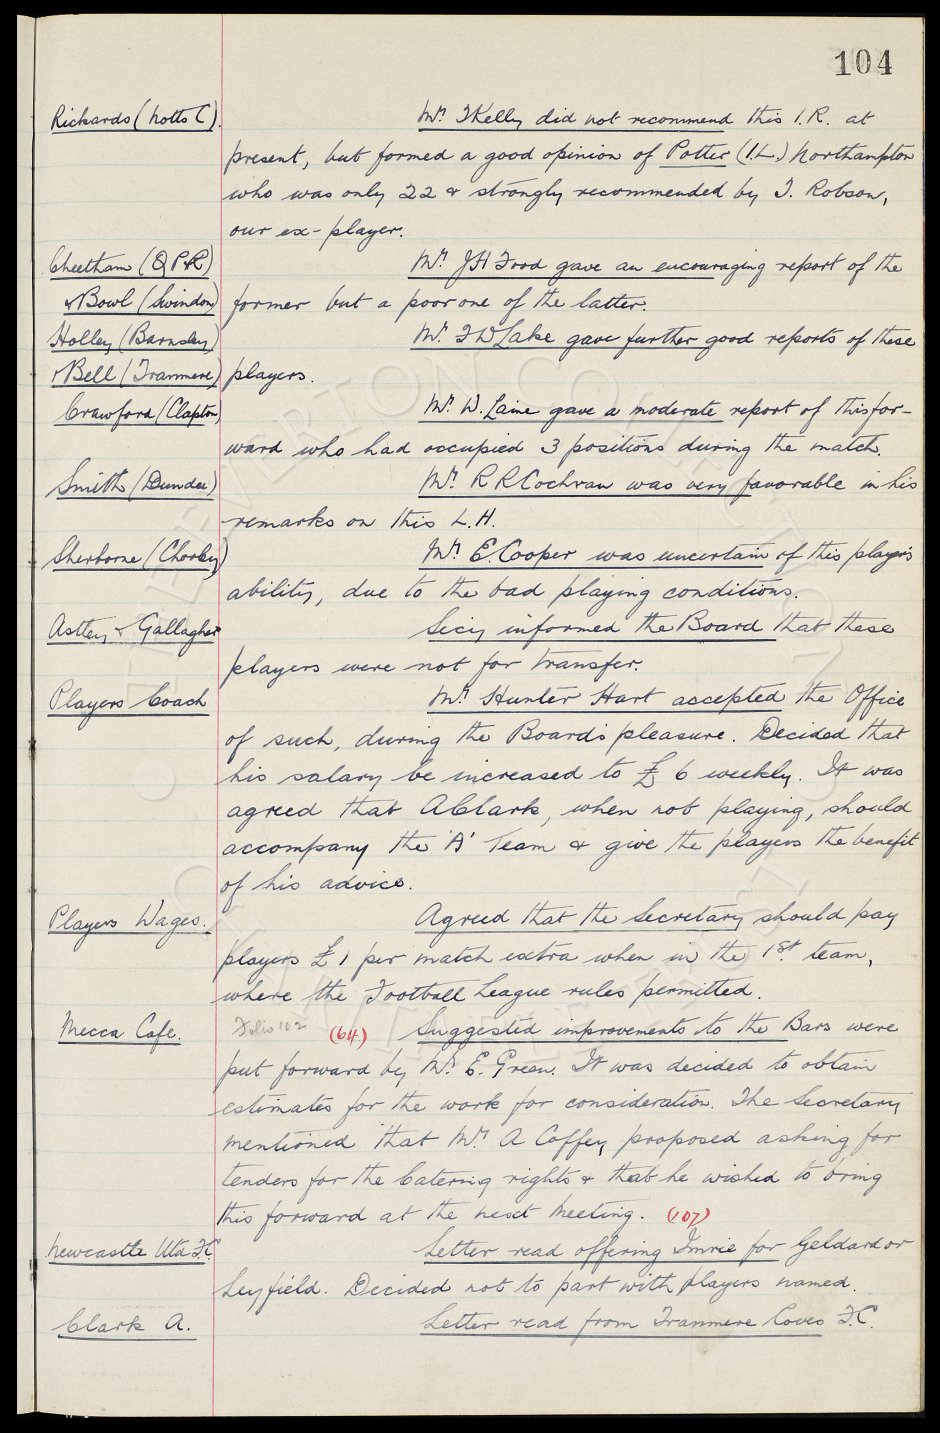 104
Rickards (Notts C). Mr. T Kelly did not recommend this I.R. at
present, but formed a good opinion of Potter (I.L.) Northampton
who was only 22 & strongly recommended by T. Robson,
our ex-player.
Cheetham (Q P R) Mr. J H Food gave an encouraging report of the
& Bowl (Swindon) former but a poor one of the latter.
Holley (Barnsley) Mr. F W Lake gave further good reports of these
& Bell (Tranmere) players.
Crawford (Clapton) Mr. W. Laine gave a moderate report of this for-
ward who had occupied 3 positions during the match.
Smith (Dundee) Mr. R R Cochran was very favorable in his
remarks on this L.H.
Sherborne (Chorley) Mr. E. Cooper was uncertain of this player's
ability, due to the bad playing conditions.
Astley & Gallagher Secy informed the Board that these
players were not for transfer.
Players Coach Mr. Hunter Hart accepted the Office
of such, during the Board's pleasure. Decided that
his salary be increased to £ 6 weekly. It was
agreed that A Clark, when not playing, should
accompany the 'A' Team & give the players the benefit
of his advice.
Players Wages. Agreed that the Secretary should pay
players £ 1 per match extra when in the 1st. team,
where the Football League rules permitted.
Mecca Cafe. Folio 102 (64) Suggested improvements to the Bars were
put forward by Mr. E. Green. It was decided to obtain
estimates for the work for consideration. The Secretary
mentioned that Mr. A Coffey proposed asking for
tenders for the Catering rights & that he wished to bring
this forward at the next Meeting. (107)
Newcastle Utd F.C Letter read offering Imrie for Geldard or
Leyfield. Decided not to part with players named.
Clark A. Letter read from Tranmere Rovers F.C.